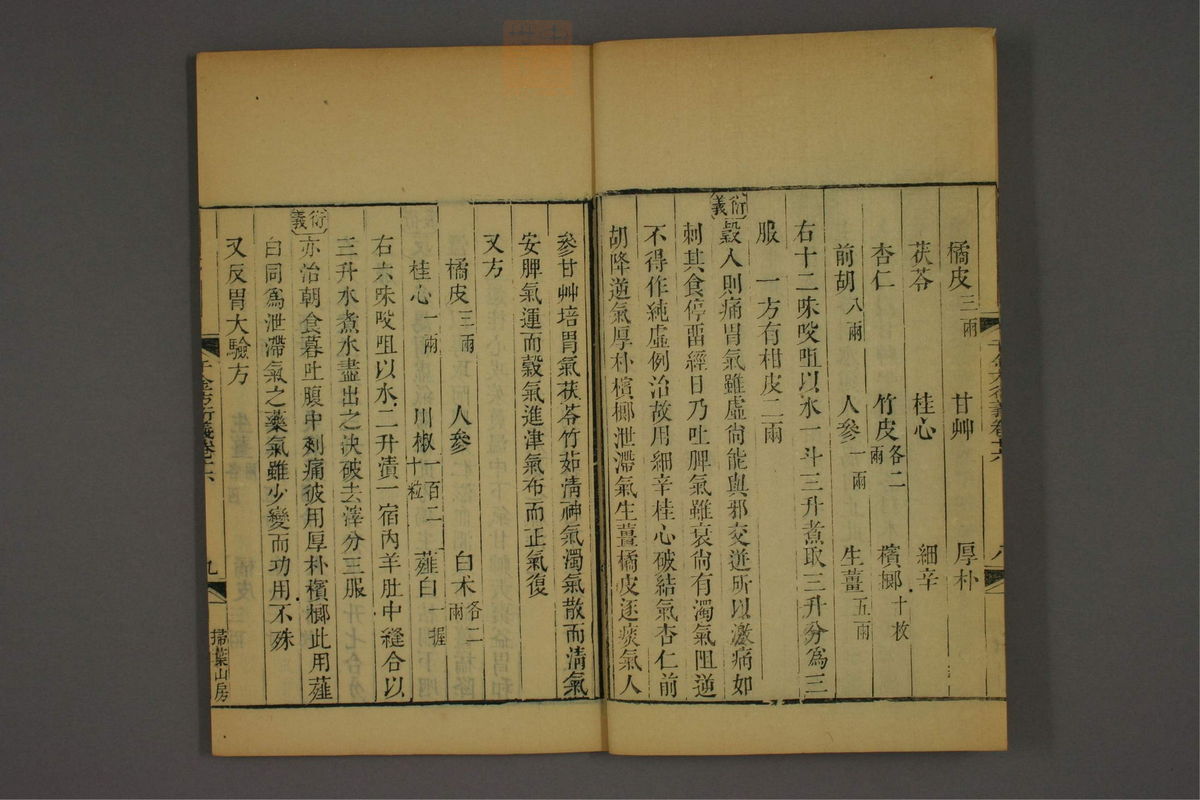 橘皮三兩 甘艸 厚朴
茯苓 桂心 細辛
杏仁 竹皮各二兩 檳榔十枚
前胡八兩 人參一兩 生薑五兩
右十二味㕮咀以水一斗三升煮取三升分爲三
服 一方有柑皮二兩
衍義
穀入則痛胃氣雖虛尙能與邪交迸所以激痛如
刺其食停畱經日乃吐脾氣雖衰尙有濁氣阻逆
不得作純虛例治故用細辛桂心破結氣杏仁前
胡降逆氣厚朴檳榔泄滯氣生薑橘皮逐痰氣人
參甘艸培胃氣茯苓竹茹淸神氣濁氣散而淸氣
安脾氣運而穀氣進津氣布而正氣復
又方
橘皮三兩 人參 白朮各二兩
桂心一兩 川椒一百二十粒 薤白一握
右六味㕮咀以水二升漬一宿內羊肚中縫合以
三升水煮水盡出之決破去滓分三服
衍義
亦治朝食暮吐腹中刺痛彼用厚朴檳榔此用薤
白同爲泄滯氣之藥氣雖少變而功用不殊
又反胃大驗方
千金方衍義卷十六
九
掃葉山房